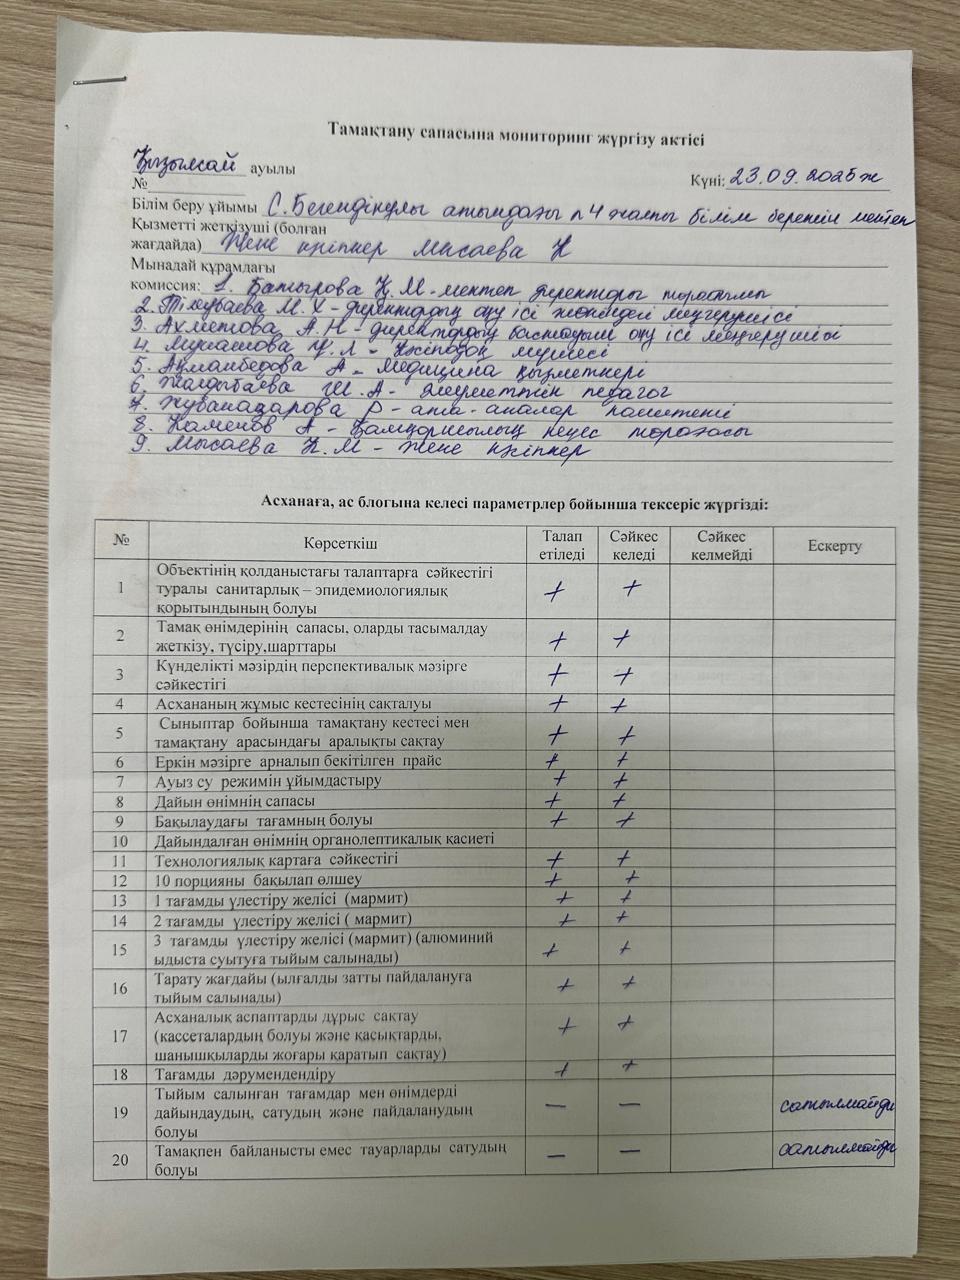 Тамақтану сапасына мониторинг жүргізу актісі
Қызылсай ауылы
№ Күні: 23.09.2025ж
Білім беру ұйымы С.Бегендікұлы атындағы n4 жалпы білім беретін мектеп
Қызметті жеткізуші (болған
жағдайда) Жеке кәсіпкер Мысаева К
Мынадай құрамдағы
комиссия: 1. Батырова К М - мектеп директоры төрайымы
2. М. Х - директордың оқу ісі жөніндегі меңгерушісі
3. Ахметова А.Н - директордың бастауыш оқу ісі меңгерушісі
4. - кәсіподақ мүшесі
5. А - Медицина қызметкері
6. Ш. А - әлеуметтік педагог
7. Р - ата-аналар комитеті
8. А - Қамқоршылық кеңес төрағасы
9. Мысаева К. М - Жеке кәсіпкер
Асханаға, ас блогына келесі параметрлер бойынша тексеріс жүргізді:
№ Көрсеткіш Талап етіледі Сәйкес келеді Сәйкес келмейді Ескерту
1 Объектінің қолданыстағы талаптарға сәйкестігі
туралы санитарлық – эпидемиологиялық + +
қорытындының болуы
2 Тамақ өнімдерінің сапасы, оларды тасымалдау
жеткізу, түсіру,шарттары + +
3 Күнделікті мәзірдің перспективалық мәзірге + +
сәйкестігі
4 Асхананың жұмыс кестесінің сақталуы + +
5 Сыныптар бойынша тамақтану кестесі мен
тамақтану арасындағы аралықты сақтау + +
6 Еркін мәзірге арналып бекітілген прайс + +
7 Ауыз су режимін ұйымдастыру + +
8 Дайын өнімнің сапасы + +
9 Бақылаудағы тағамның болуы + +
10 Дайындалған өнімнің органолептикалық қасиеті
11 Технологиялық картаға сәйкестігі + +
12 10 порцияны бақылап өлшеу + +
13 1 тағамды үлестіру желісі (мармит) + +
14 2 тағамды үлестіру желісі ( мармит) + +
15 3 тағамды үлестіру желісі (мармит) (алюминий
ыдыста суытуға тыйым салынады) + +
16 Тарату жағдайы (ылғалды затты пайдалануға + +
тыйым салынады)
17 Асханалық аспаптарды дұрыс сақтау
(кассеталардың болуы және қасықтарды, + +
шанышқыларды жоғары қаратып сақтау)
18 Тағамды дәрумендендіру + +
19 Тыйым салынған тағамдар мен өнімдерді
дайындаудың, сатудың және пайдаланудың — — сатылмайды
болуы
20 Тамақпен байланысты емес тауарларды сатудың — — сатылмайды
болуы